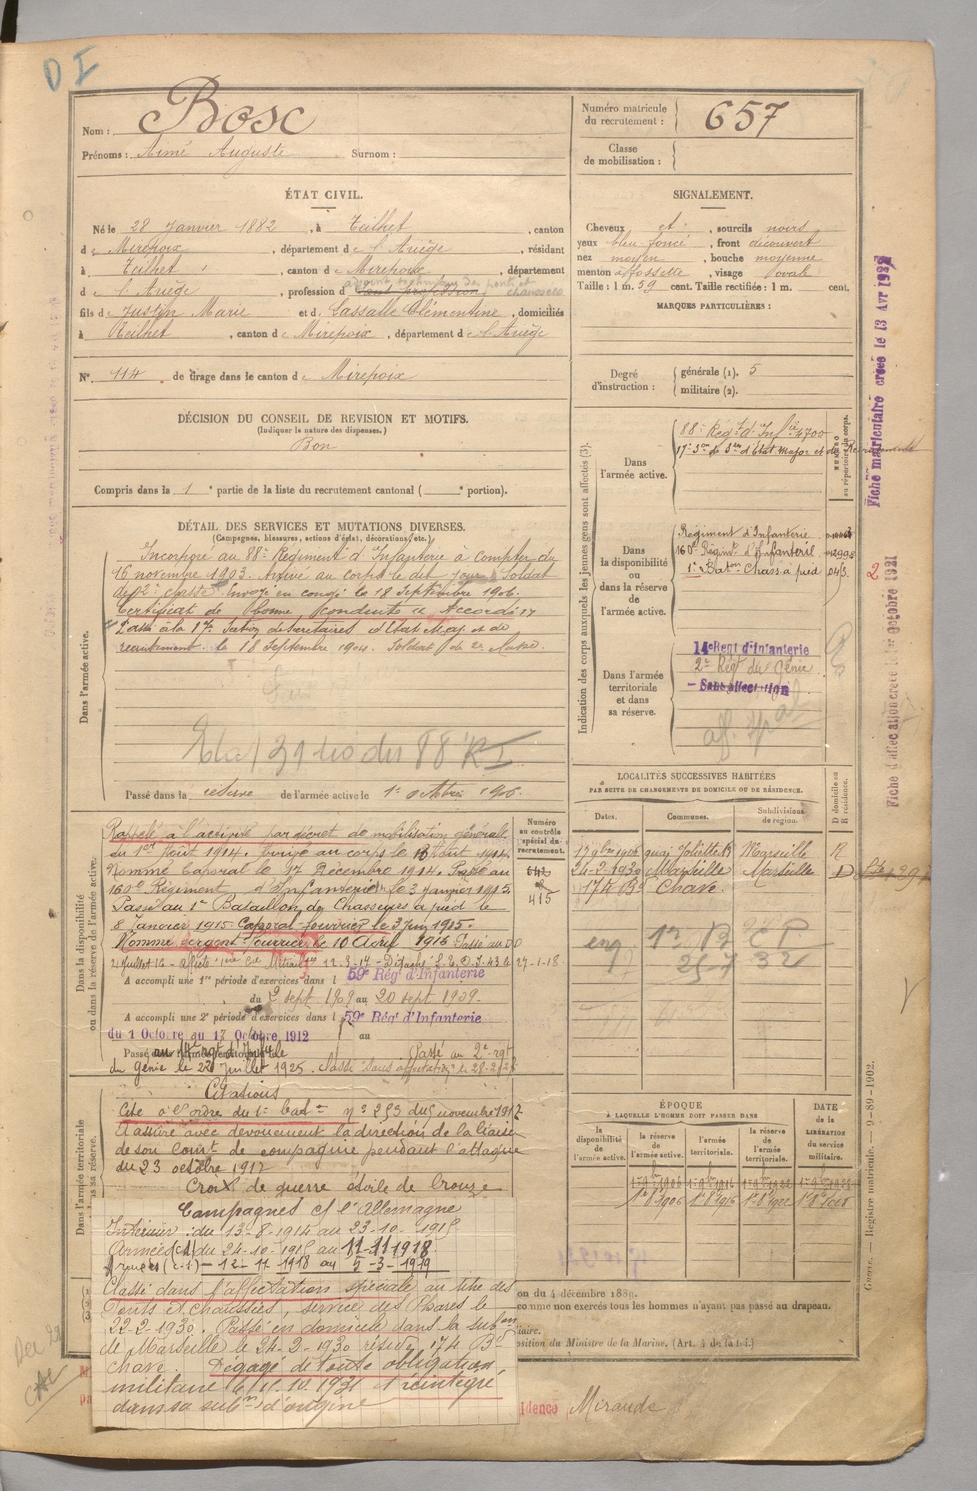 D I
Nom : Bosc
Prénoms : Aimé Auguste Surnom :
Numéro matricule du recrutement : 657
Classe de mobilisation :
ÉTAT CIVIL.
Né le 28 Janvier 1882, à Teilhet, canton
de Mirepoix, département de l'Ariège, résidant
à Teilhet, canton de Mirepoix, département
de l'Ariège, profession d adjoint technique des ponts et chaussées
fils de Justin Marie et de Lassalle Clémentine, domiciliés
à Teilhet, canton de Mirepoix, département de l'Ariège
N° 114 de tirage dans le canton de Mirepoix
SIGNALEMENT.
Cheveux et , sourcils noirs
yeux bleu foncé , front découvert
nez moyen , bouche moyenne
menton à fossette , visage ovale
Taille : 1 m. 59 cent. Taille rectifiée : 1 m. cent.
MARQUES PARTICULIÈRES :
Degré d'instruction : générale (1). 5
militaire (2).
DÉCISION DU CONSEIL DE REVISION ET MOTIFS.
(Indiquer la nature des dispenses.)
Bon
Compris dans la 1e partie de la liste du recrutement cantonal ( e portion).
DÉTAIL DES SERVICES ET MUTATIONS DIVERSES.
(Campagnes, blessures, actions d'éclat, décorations, etc.)
Dans l'armée active.
Incorporé au 88e Régiment d'Infanterie à compter du
16 novembre 1903. Arrivé au corps le dit jour Soldat
de 2e classe. Envoyé en congé le 18 Septembre 1906.
Certificat de Bonne Conduite "Accordé"
Passé à la 17e Section de Secrétaires d'Etat Maj. et de
recrutement le 18 Septembre 1904. Soldat de 2e classe.
du 88e RI
Passé dans la réserve de l'armée active le 1er octobre 1906.
Indication des corps auxquels les jeunes gens sont affectés (3).
NUMÉRO au répertoire du corps.
Dans l'armée active.
88e Régt d'Infie 4700
17e Son de Sres d'Etat Major et de Recrutement
Dans la disponibilité ou dans la réserve de l'armée active.
Régiment d'Infanterie
160e Régimt d'Infanterie
1er Baton Chass. à pied
Dans l'armée territoriale et dans sa réserve.
14e Regt d'Infanterie
2e Régt du Génie
- Sans affectation
aff. spal
LOCALITÉS SUCCESSIVES HABITÉES
PAR SUITE DE CHANGEMENTS DE DOMICILE OU DE RÉSIDENCE.
Dates. Communes. Subdivisions de région. D domicile ou R résidence.
quai Joliette Marseille R
24-2-1930 Marseille Marseille D
174 Bd Chave.
Dans la disponibilité ou dans la réserve de l'armée active.
Numéro au contrôle spécial du recrutement.
415
Rappelé à l'activité par décret de mobilisation générale
du 1er Août 1914. Arrivé au corps le 13 Août 1914.
Nommé Caporal le 17 Décembre 1914. Passé au
160e Régiment d'Infanterie le 3 janvier 1915
Passé au 1er Bataillon de Chasseurs à pied le
8 Janvier 1915 Caporal-fourrier le 3 juin 1915.
Nommé Sergent fourrier le 10 Avril 1916 Passé au
A accompli une 1re période d'exercices dans l 59e Régt d'Infanterie
du 2 sept 1909 au 20 sept 1909.
A accompli une 2e période d'exercices dans l 59e Régt d'Infanterie
du 1 Octobre au 17 Octobre 1912 au
Passé au 14e rgt d'Infie Passé au 2e rgt
du génie le 22 Juillet 1925. Classé sans affectation le
Dans l'armée territoriale
Citations
Cité à l'ordre du 1er bat on n° 253 du 5 novembre 1917
A assuré avec dévouement la direction de la liaison
de son Comt de compagnie pendant l'attaque
du 23 octobre 1917
Croix de guerre étoile de bronze
Campagnes c/ l'Allemagne
Intérieur : du 13-8-1914 au 23-10-1915
Armées du 24-10-1915 au 11-11-1918.
12-11-1918 au 5-3-1919
Classé dans l'affectation spéciale au titre des
Ponts et chaussées, service des Phares le
22-2-1930. Passé en domicile dans la subon
de Marseille le 24-2-1930 résidt 174 Bd
Chave. Dégagé de toute obligation
militaire le 15.10.1931 et réintégré
dans sa subon d'origine
ÉPOQUE
À LAQUELLE L'HOMME DOIT PASSER DANS
la disponibilité de l'armée active. la réserve de l'armée active. l'armée territoriale. la réserve de l'armée territoriale.
DATE de la LIBÉRATION du service militaire.
on du 4 décembre 1889.
comme non exercés tous les hommes n'ayant pas passé au drapeau.
iaire.
osition du Ministre de la Marine.
idence Mirande
Fiche matriculaire créée le 13 Avr
Fiche d'affectation créée le 1er Octobre 1921
Registre matricule. — 9-89-1902.